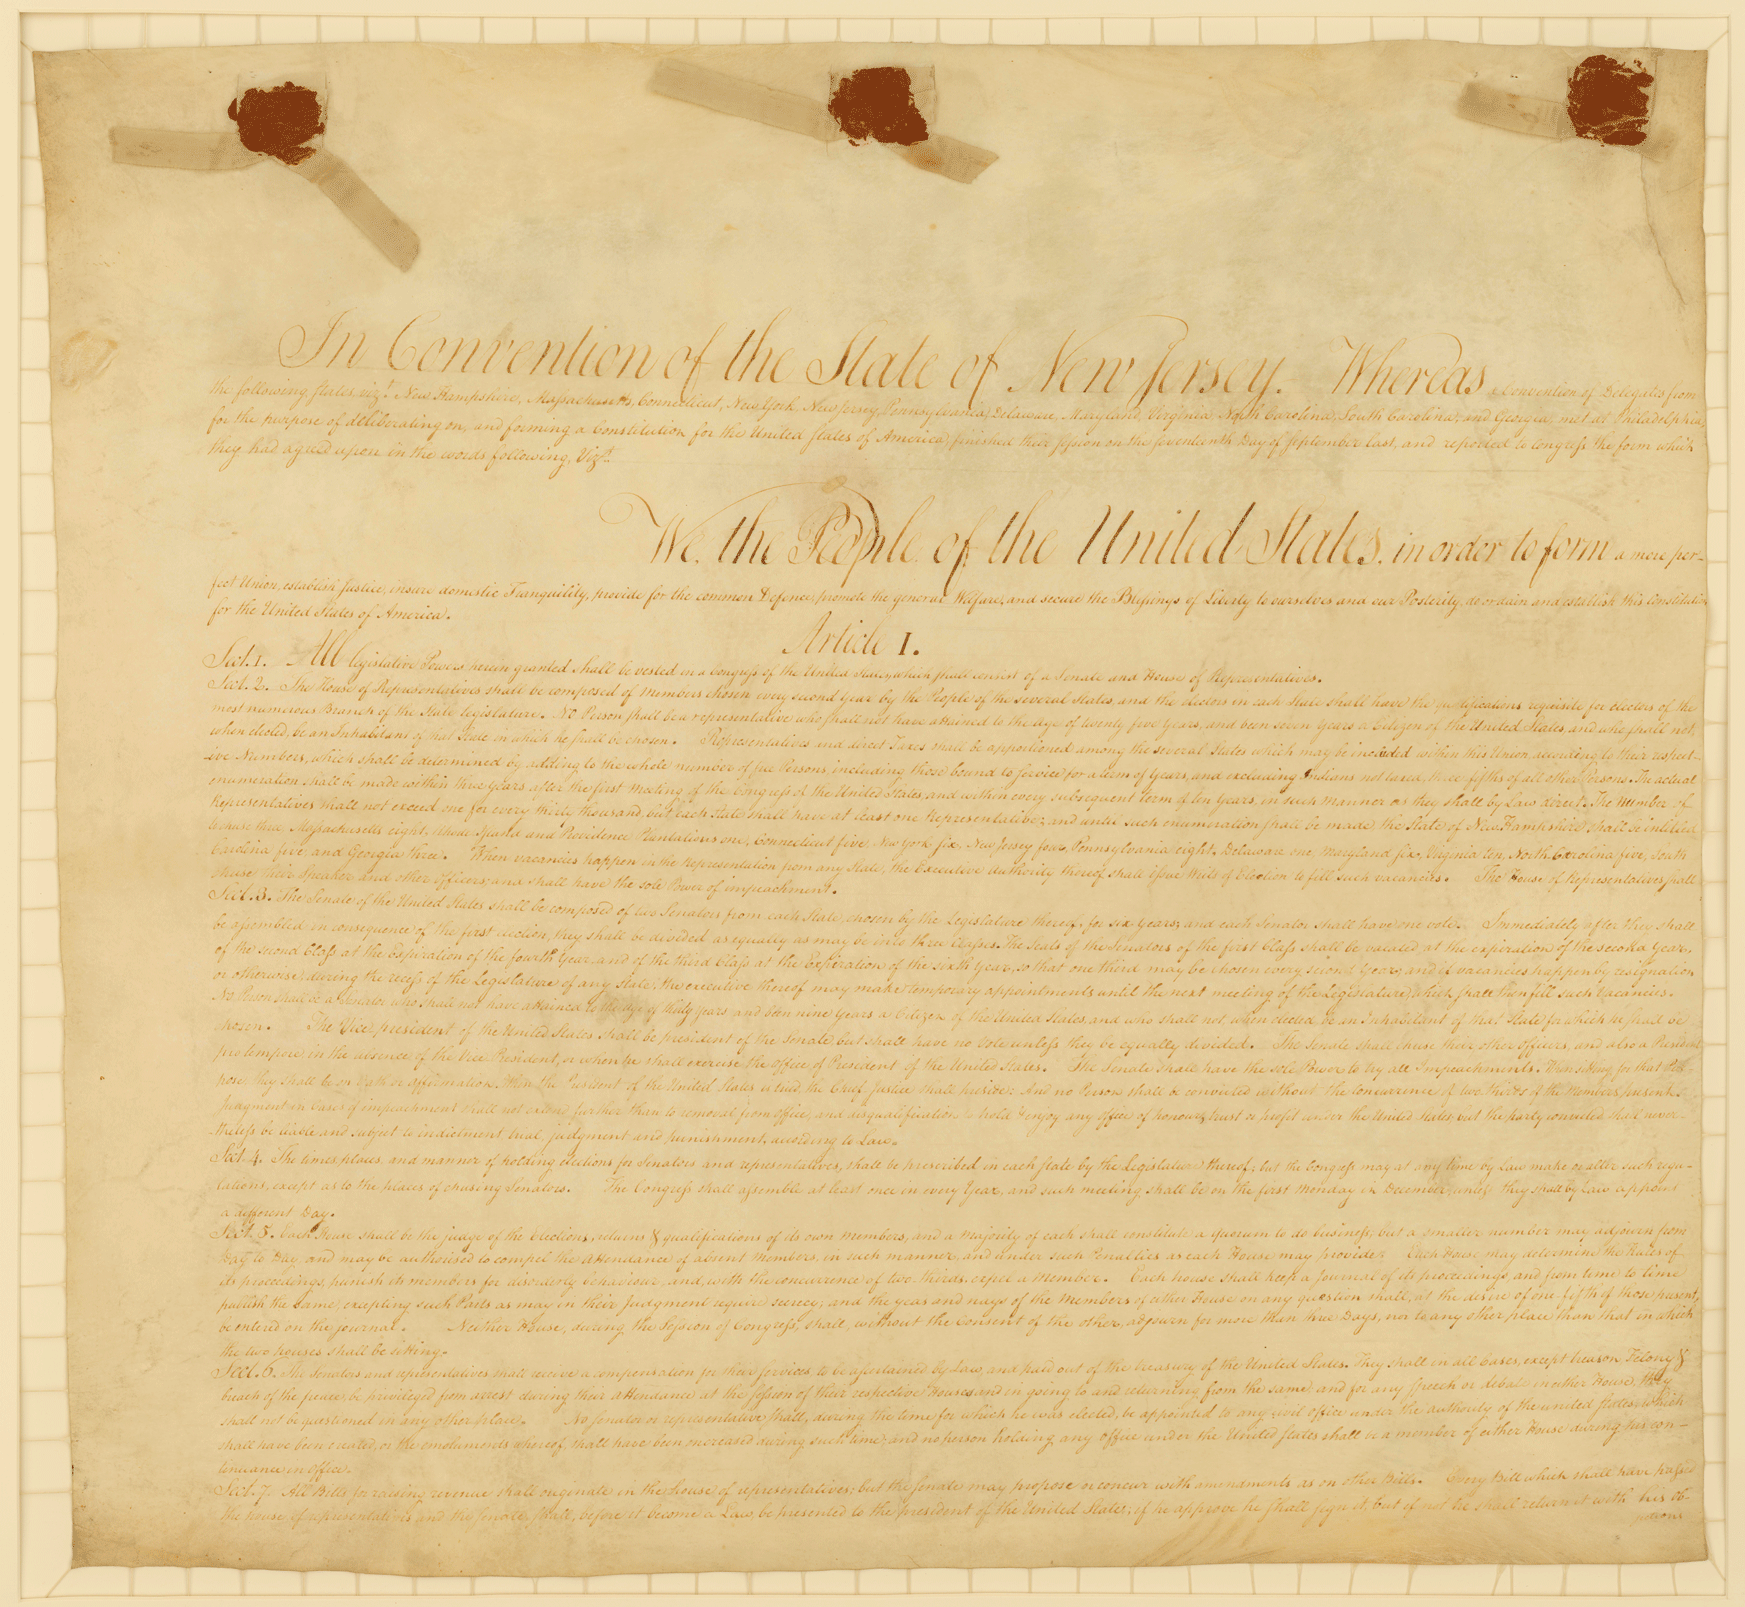 In Convention of the State of New Jersey. Whereas a Convention of Delegates from
the following States, viz.t New Hampshire, Massachusetts, Connecticut, New York, New Jersey, Pennsylvania, Delaware, Maryland, Virginia, North Carolina, South Carolina, and Georgia, met at Philadelphia,
for the purpose of deliberating on, and forming a Constitution for the United States of America, finished their session on the seventeenth Day of September last, and reported to Congress the form which
they had agreed upon in the words following, Viz.t
We, the People of the United States, in order to form a more per-
fect Union, establish Justice, insure domestic Tranquility, provide for the common Defence, promote the general Welfare, and secure the Blessings of Liberty to ourselves and our Posterity, do ordain and establish this Constitution
for the United States of America.
Article I.
Sect. 1. All legislative Powers herein granted shall be vested in a Congress of the United States, which shall consist of a Senate and House of Representatives.
Sect. 2. The House of Representatives shall be composed of members chosen every second year by the People of the several States, and the electors in each State shall have the qualifications requisite for electors of the
most numerous Branch of the State legislature. No Person shall be a representative who shall not have attained to the age of twenty five years, and been seven years a Citizen of the United States, and who shall not,
when elected, be an Inhabitant of that State in which he shall be chosen. Representatives and direct Taxes shall be apportioned among the several States which may be included within this Union, according to their respect-
ive Numbers, which shall be determined by adding to the whole number of free Persons, including those bound to service for a term of years, and excluding Indians not taxed, three fifths of all other Persons. The actual
enumeration shall be made within three years after the first meeting of the Congress of the United States, and within every subsequent term of ten years, in such manner as they shall by Law direct. The Number of
Representatives shall not exceed one for every thirty thousand, but each State shall have at least one Representative; and until such enumeration shall be made, the State of New Hampshire shall be intitled
to chuse three, Massachusetts eight, Rhode Island and Providence Plantations one, Connecticut five, New York six, New Jersey four, Pennsylvania eight, Delaware one, Maryland six, Virginia ten, North Carolina five, South
Carolina five, and Georgia three. When vacancies happen in the representation from any State, the Executive authority thereof shall issue Writs of Election to fill such vacancies. The House of Representatives shall
chuse their Speaker and other Officers; and shall have the sole Power of impeachment.
Sect. 3. The Senate of the United States shall be composed of two Senators from each State, chosen by the Legislature thereof, for six years; and each Senator shall have one vote. Immediately after they shall
be assembled in consequence of the first election, they shall be divided as equally as may be into three classes. The seats of the Senators of the first Class shall be vacated at the expiration of the second year,
of the second Class at the Expiration of the fourth year, and of the third Class at the Expiration of the sixth year, so that one third may be chosen every second year; and if vacancies happen by resignation
or otherwise, during the recess of the Legislature of any State, the executive thereof may make temporary appointments until the next meeting of the Legislature, which shall then fill such vacancies.
No Person shall be a senator who shall not have attained to the age of thirty years and been nine years a Citizen of the United States, and who shall not, when elected, be an Inhabitant of that State for which he shall be
chosen. The Vice president of the United States shall be president of the Senate, but shall have no Vote unless they be equally divided. The Senate shall chuse their other officers, and also a President
pro tempore in the absence of the Vice President, or when he shall exercise the office of President of the United States. The Senate shall have the sole Power to try all Impeachments. When sitting for that Pur-
pose they shall be on Oath or affirmation. When the President of the United States is tried, the Chief Justice shall preside: And no Person shall be convicted without the concurrence of two thirds of the Members present.
Judgment in Cases of impeachment shall not extend further than to removal from office, and disqualification to hold & enjoy any office of honour, trust or profit under the United States; but the party convicted shall never-
theless be liable and subject to indictment, trial, judgment and punishment, according to Law.
Sect. 4. The times, places, and manner of holding elections for Senators and representatives, shall be prescribed in each State by the legislature thereof; but the Congress may at any time by Law make or alter such regu-
lations, except as to the places of chusing Senators. The Congress shall assemble at least once in every Year, and such meeting shall be on the first Monday in December, unless they shall by Law appoint
a different Day.
Sect. 5. Each House shall be the judge of the elections, returns & qualifications of its own members, and a majority of each shall constitute a quorum to do business; but a smaller number may adjourn from
Day to Day, and may be authorised to compel the attendance of absent members, in such manner, and under such Penalties as each House may provide. Each House may determine the Rules of
its proceedings, punish its members for disorderly behaviour, and, with the concurrence of two thirds, expel a Member. Each house shall keep a Journal of its proceedings, and from time to time
publish the same, excepting such Parts as may in their Judgment require secrecy; and the yeas and nays of the Members of either House on any question shall, at the desire of one fifth of those present,
be entered on the journal. Neither House, during the Session of Congress, shall, without the Consent of the other, adjourn for more than three Days, nor to any other place than that in which
the two houses shall be sitting.
Sect. 6. The Senators and representatives shall receive a compensation for their services, to be ascertained by Law, and paid out of the treasury of the United States. They shall in all Cases, except treason, Felony &
breach of the peace, be privileged from arrest during their attendance at the session of their respective Houses, and in going to and returning from the same; and for any speech or debate in either House, they
shall not be questioned in any other place. No senator or representative shall, during the time for which he was elected, be appointed to any civil office under the authority of the united States, which
shall have been created, or the emoluments whereof shall have been increased during such time; and no person holding any office under the United States shall be a member of either House during his con-
tinuance in office.
Sect. 7. All Bills for raising revenue shall originate in the house of representatives; but the senate may propose or concur with amendments as on other Bills. Every Bill which shall have passed
the house of representatives and the senate, shall, before it become a Law, be presented to the president of the United States; if he approve he shall sign it, but if not he shall return it with his ob-
jections